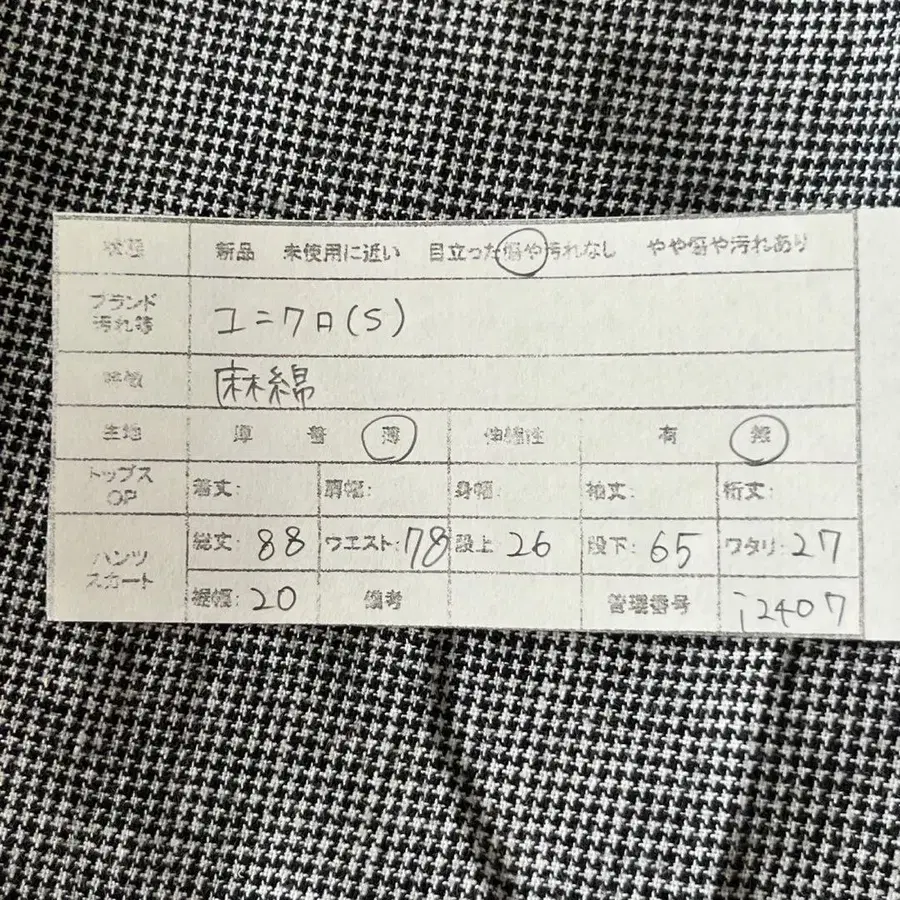 状態 新品 未使用に近い 目立った傷や汚れなし やや傷や汚れあり
ブランド
汚れ等 ユニクロ(S)
特徴 麻綿
生地 厚 普 薄 伸縮性 有 無
トップス
OP 着丈: 肩幅: 身幅: 袖丈: 裄丈:
パンツ
スカート 総丈: 88 ウエスト: 78 股上 26 股下: 65 ワタリ: 27
裾幅: 20 備考 管理番号 i2407